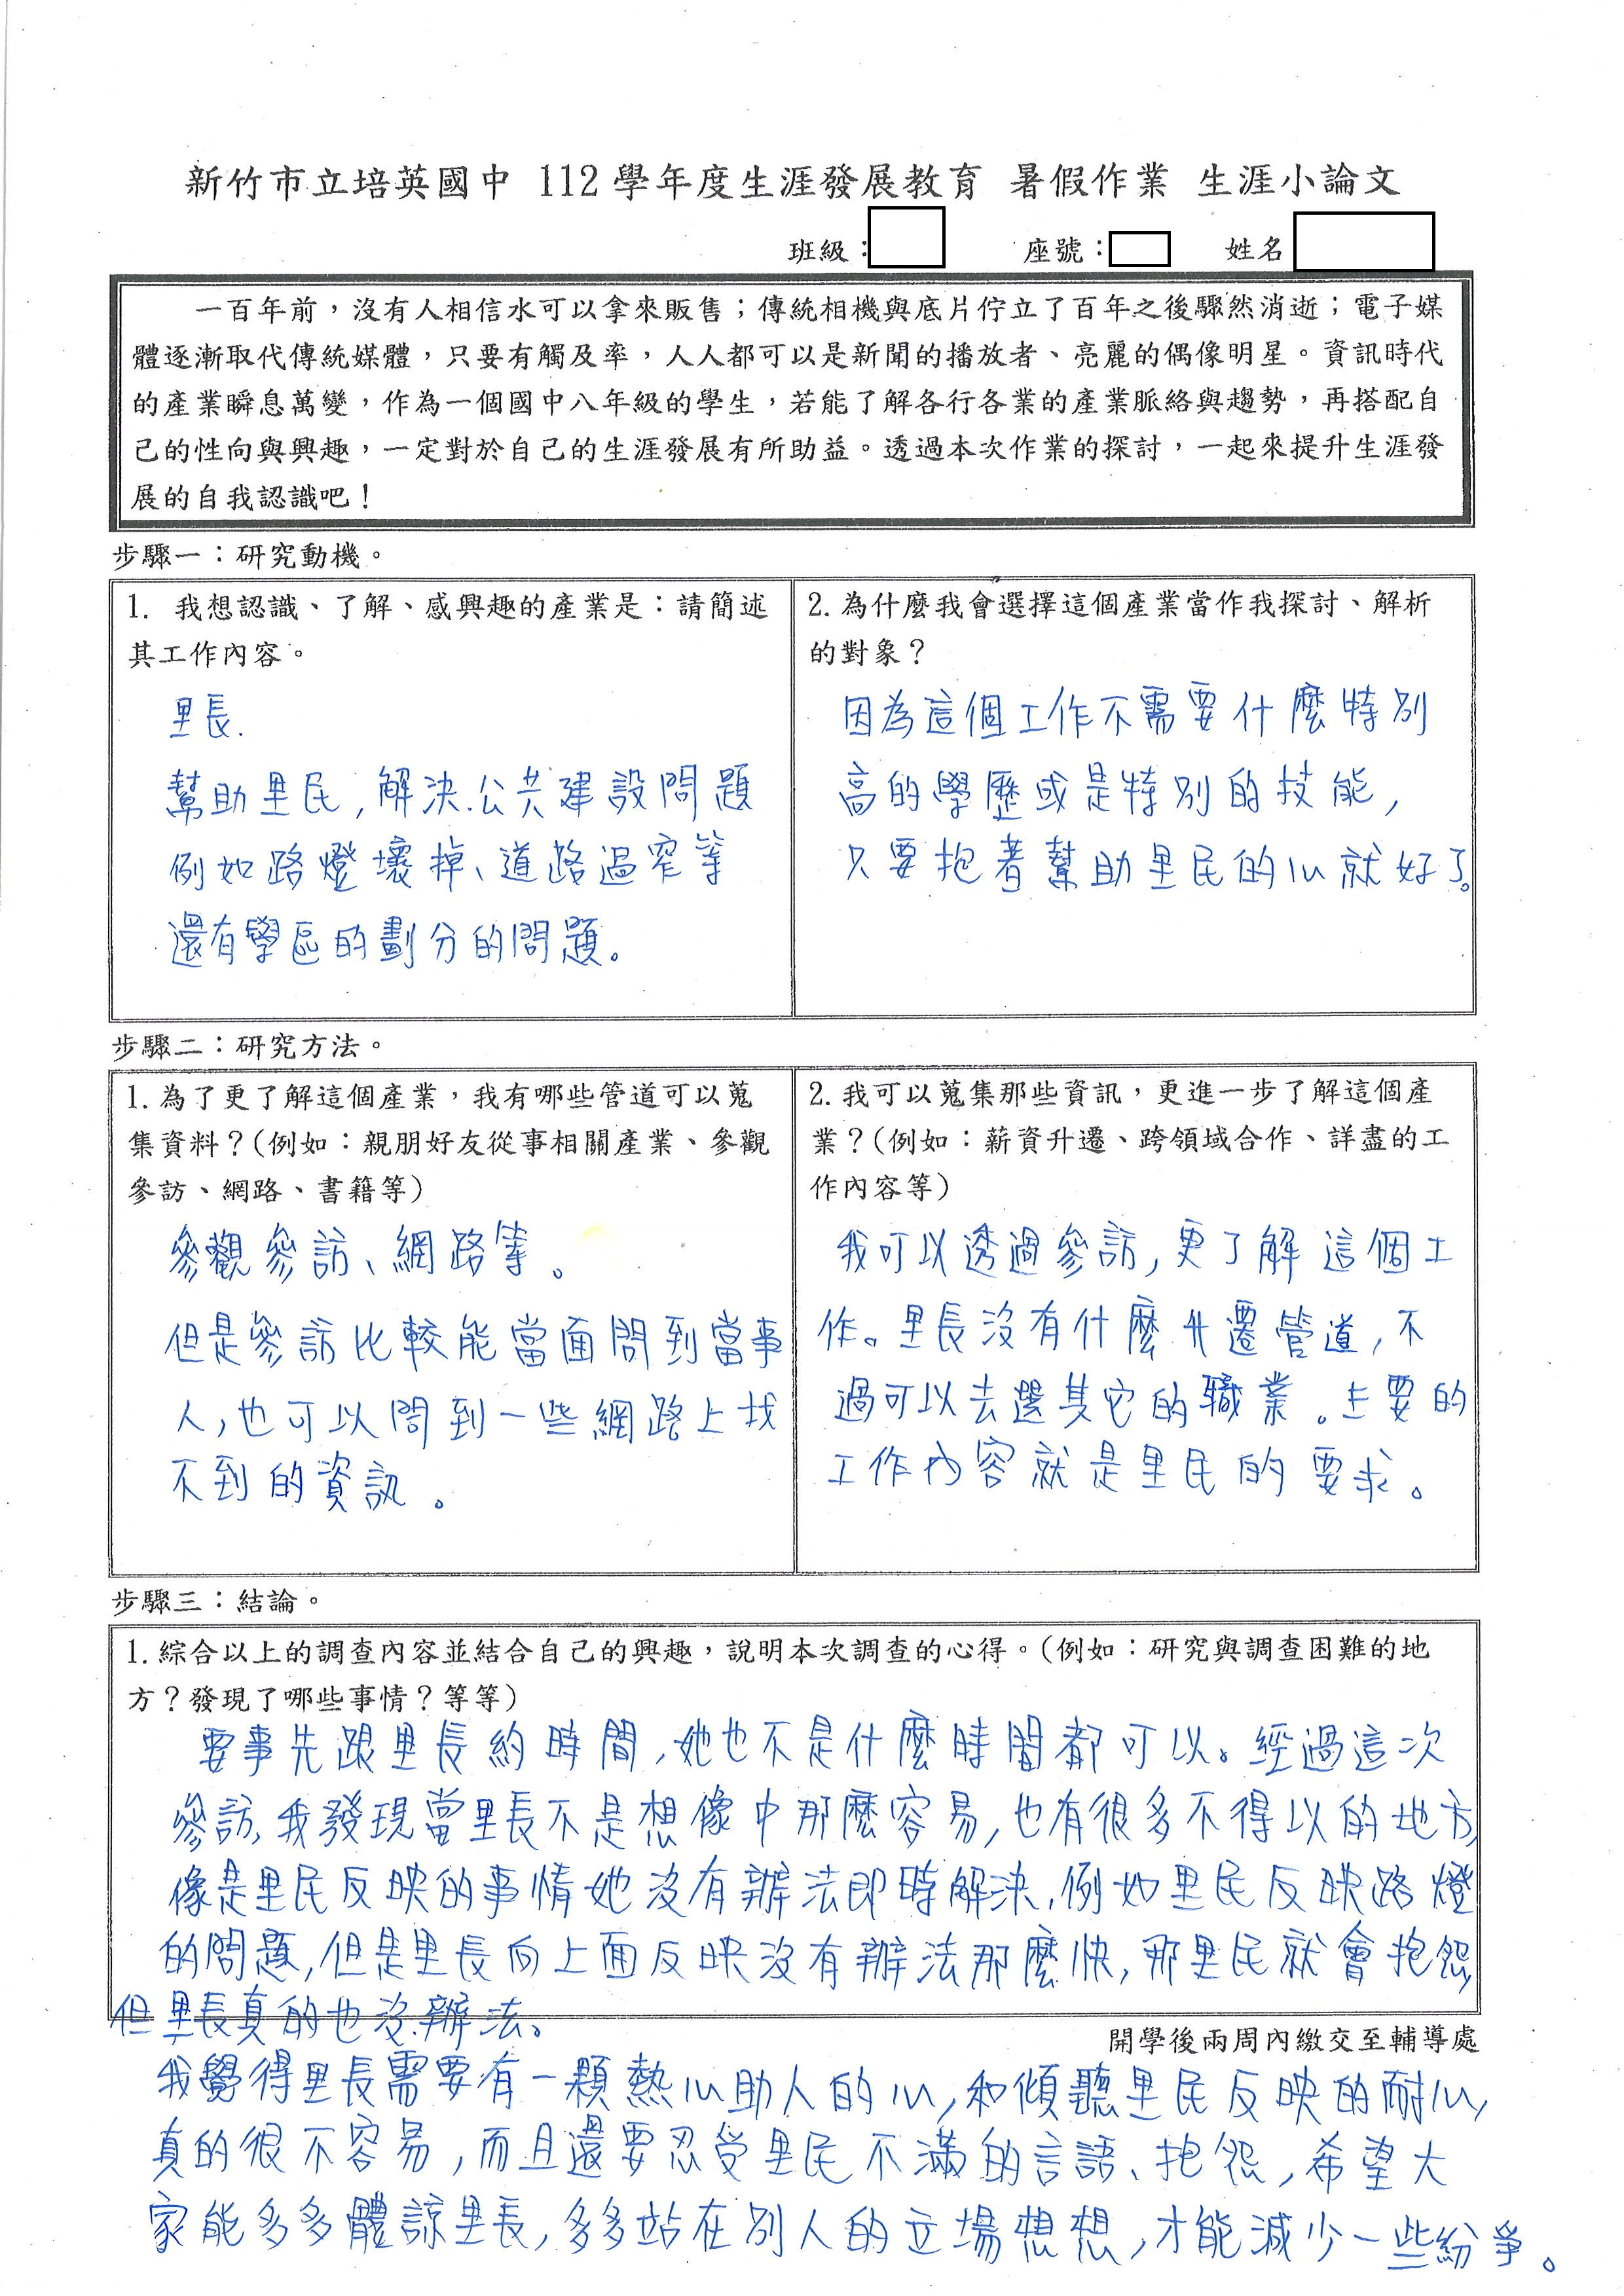 新竹市立培英國中 112 學年度生涯發展教育 暑假作業 生涯小論文
班級： 座號： 姓名
一百年前，沒有人相信水可以拿來販售；傳統相機與底片佇立了百年之後驟然消逝；電子媒
體逐漸取代傳統媒體，只要有觸及率，人人都可以是新聞的播放者、亮麗的偶像明星。資訊時代
的產業瞬息萬變，作為一個國中八年級的學生，若能了解各行各業的產業脈絡與趨勢，再搭配自
己的性向與興趣，一定對於自己的生涯發展有所助益。透過本次作業的探討，一起來提升生涯發
展的自我認識吧！
步驟一：研究動機。
1. 我想認識、了解、感興趣的產業是：請簡述
其工作內容。
里長.
幫助里民,解決公共建設問題
例如路燈壞掉、道路過窄等
還有學區的劃分的問題。
2.為什麼我會選擇這個產業當作我探討、解析
的對象？
因為這個工作不需要什麼特別
高的學歷或是特別的技能,
只要抱著幫助里民的心就好了。
步驟二：研究方法。
1.為了更了解這個產業，我有哪些管道可以蒐
集資料？(例如：親朋好友從事相關產業、參觀
參訪、網路、書籍等)
參觀參訪、網路等。
但是參訪比較能當面問到當事
人,也可以問到一些網路上找
不到的資訊。
2.我可以蒐集那些資訊，更進一步了解這個產
業？(例如：薪資升遷、跨領域合作、詳盡的工
作內容等)
我可以透過參訪,更了解這個工
作。里長沒有什麼升遷管道,不
過可以去選其它的職業。主要的
工作內容就是里民的要求。
步驟三：結論。
1.綜合以上的調查內容並結合自己的興趣，說明本次調查的心得。(例如：研究與調查困難的地
方？發現了哪些事情？等等)
要事先跟里長約時間,她也不是什麼時間都可以。經過這次
參訪,我發現當里長不是想像中那麼容易,也有很多不得以的地方,
像是里民反映的事情她沒有辦法即時解決,例如里民反映路燈
的問題,但是里長向上面反映沒有辦法那麼快,那里民就會抱怨,
但里長真的也沒辦法。
開學後兩周內繳交至輔導處
我覺得里長需要有一顆熱心助人的心,和傾聽里民反映的耐心,
真的很不容易,而且還要忍受里民不滿的言語、抱怨,希望大
家能多多體諒里長,多多站在別人的立場想想,才能減少一些紛爭。